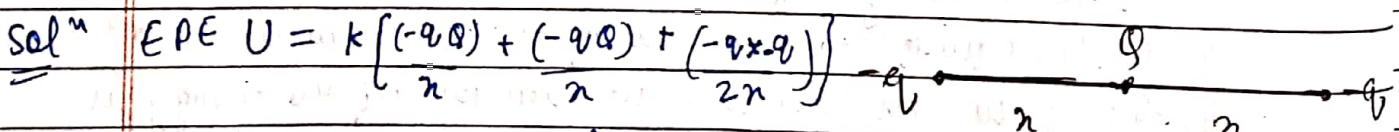 Solⁿ EPE U = k[(-qQ)/x + (-qQ)/x + (-q×-q)/2x] -q Q -q
x x